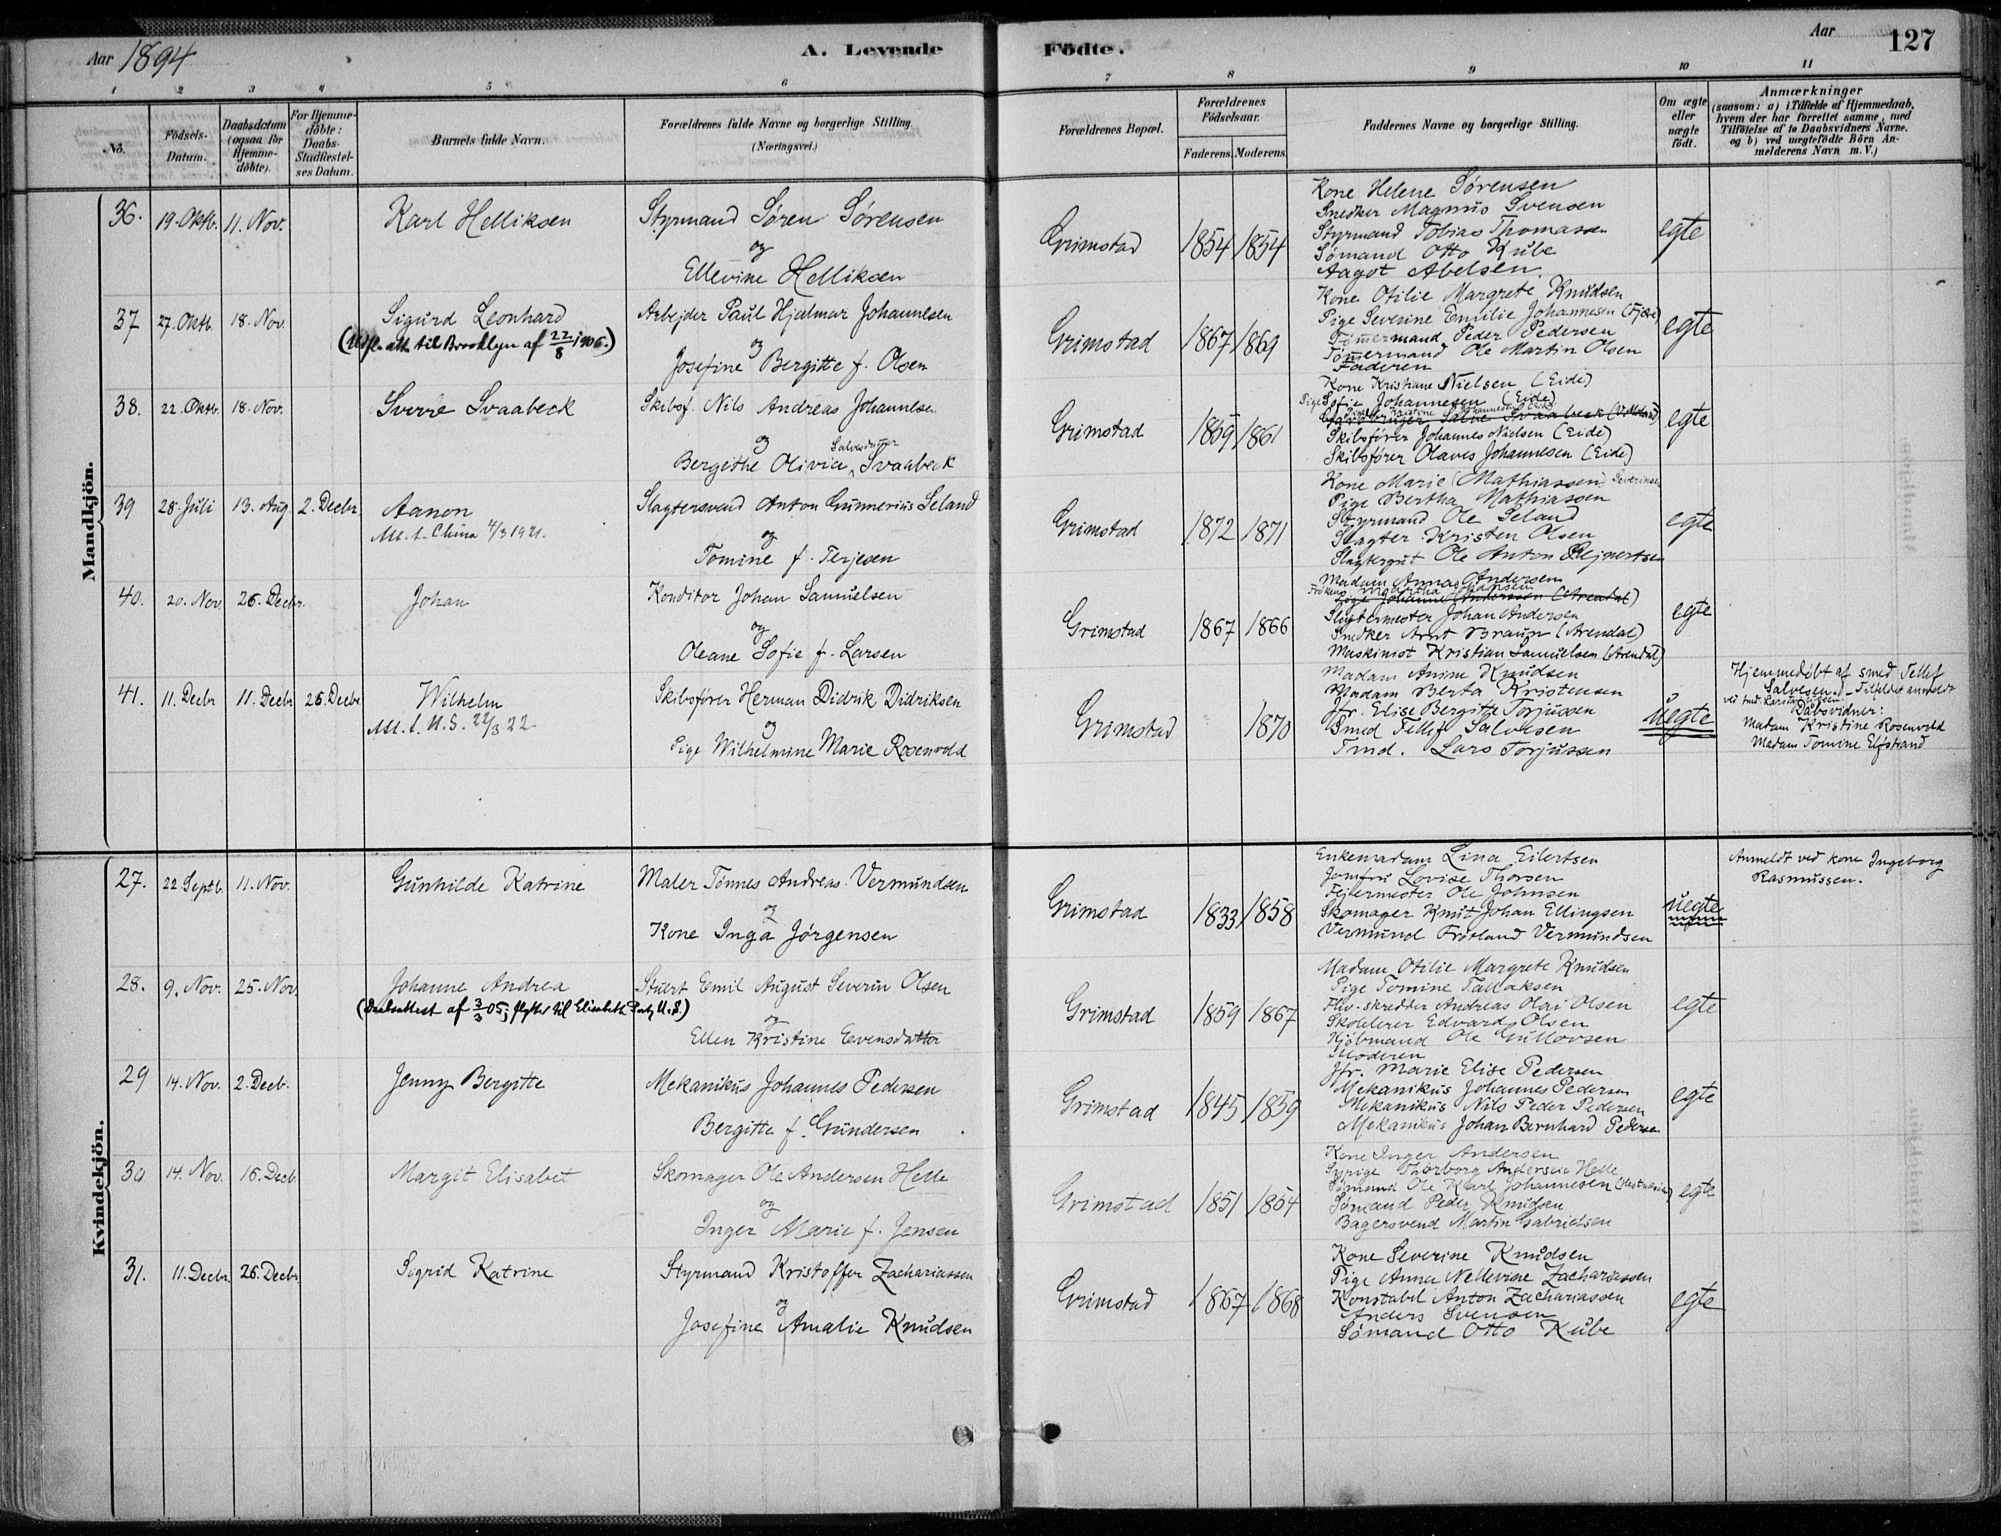 Aar 1894
A. Levende
Födte.
Aar
127
1 2 3 4 5 6 7 8 9 10 11
No.
Födsels-Datum.
Daabsdatum (ogsaa for Hjemmedöbte).
For Hjemmedöbte: Daabs-Stadfæstelses Datum.
Barnets fulde Navn.
Forældrenes fulde Navne og borgerlige Stilling (Næringsvei.)
Forældrenes Bopæl.
Forældrenes Födselsaar.
Faderens. Moderens.
Faddernes Navne og borgerlige Stilling.
Om ægte eller uægte födt.
Anmærkninger
(saasom: a) i Tilfælde af Hjemmedaab,
hvem der har forrettet samme, med
Tilföielse af to Daabsvidners Navne.
og b) ved uægtefödte Börn Anmelderens Navn m.V.)
Mandkjön.
36. 19. Oktb. 11. Nov. Karl Helliksen
Styrmand Søren Sørensen
og
Ellevine Helliksen
Grimstad 1854 1854
Kone Helene Sørensen
Snedker Magnus Svensen
Styrmand Tobias Thomassen
Sømand Otto Kube
Aagot Abelsen.
egte
37 27. Oktb. 18. Nov. Sigurd Leonhard
(Udfl. att. til Brooklyn af 22/8 1906.)
Arbejder Paul Hjalmar Johannesen
og
Josefine Bergitte f. Olsen
Grimstad 1867 1869
Kone Otilie Margrete Knudsen
Pige Severine Emilie Johannesen (Fjære)
Tømmermand Peder Pedersen
Tømmermand Ole Martin Olsen
Faderen
egte
38. 22. Oktb. 18. Nov. Sverre Svaabeck
Skibsf. Nils Andreas Johannesen
og
Salvesdatter
Bergithe Olivia Svaabeck
Grimstad 1859 1861
Kone Kristiane Nielsen (Eide)
Pige Sofie Johannesen (Eide)
Skibsfører Johannes Nielsen (Eide)
Skibsfører Olaves Johannesen (Eide)
egte
39 28. Juli 13. Aug. 2. Decbr. Aanon
Att. t. China 4/3 1921.
Slagtersvend Anton Gunnerius Seland
og
Tomine f. Terjesen
Grimstad 1872 1871
Kone Marie (Mathiassen) Severinsen
Pige Bertha Mathiassen
Styrmand Ole Seland
Slagter Kristen Olsen
Slagtergut Ole Anton Rejnertsen
egte
40. 20. Nov. 26. Decbr. Johan
Konditor Johan Samuelsen
og
Oleane Sofie f. Larsen
Grimstad 1867 1866
Madam Anna Andersen
Frøken Martha Johansen
Pige Johanne Andersen (Arendal)
Slagtermester Johan Andersen
Snedker Arnt Braun (Arendal)
Maskinist Kristian Samuelsen (Arendal)
egte
41. 11. Decbr 11. Decbr 26. Decbr. Wilhelm
Att. t. U.S. 22/3 22.
Skibsfører Herman Didrik Didriksen
og
Pige Wilhelmine Marie Rosenvold
Grimstad 1870
Madam Anine Knudsen
Madam Berta Kristensen
Jfr. Elise Bergitte Torjussen
Smed Tellef Salvesen
Tmd. Lars Torjussen
uegte
Hjemmedøbt af smed Tellef
Salvesen. Tilfældet anmeldt
Dåbsvidner:
Madam Kristine Rosenvold
Madam Tomine Elfstrand
Kvindekjön.
27. 22. Septb. 11. Nov. Gunhilde Katrine
Maler Tønnes Andreas Vermundsen
og
Kone Inga Jørgensen
Grimstad 1833 1858
Enkemadam Lina Eilertsen
Jomfru Lovise Thorsen
Fejermester Ole Johnsen
Skomager Knut Johan Ellingsen
Vermund Frøland Vermundsen
uegte
Anmeldt ved kone Ingeborg
Rasmussen.
28. 9. Nov. 25. Nov. Johanne Andrea
(Daabsattest af 3/3 05; flyttet til Elisabeth Port U.S.)
Stuert Emil August Severin Olsen
og
Ellen Kristine Evensdatter
Grimstad 1859 1867
Madam Otilie Margrete Knudsen
Pige Tomine Tallaksen
Fhv. skredder Andreas Olai Olsen
Skolelærer Edvard Olsen
Kjøbmand Ole Gullovsen
Moderen
egte
29 14. Nov. 2. Decb. Jenny Bergitte
Mekanikus Johannes Pedersen
Bergitte f. Gundersen
Grimstad 1845 1859
Jfr. Marie Elise Pedersen
Mekanikus Johannes Pedersen
Mekanikus Nils Peder Pedersen
Mekanikus Johan Bernhard Pedersen
egte
30 14. Nov. 16. Decb. Margit Elisabet
Skomager Ole Andersen Helle
og
Inger Marie f. Jensen
Grimstad 1851 1854
Kone Inger Andersen
Sypige Thorborg Andersen Helle
Sømand Ole Karl Johannesen
Sømand Peder Knudsen
Bagersvend Martin Gabrielsen
egte
31. 11. Decbr. 26. Decbr. Sigrid Katrine
Styrmand Kristoffer Zachariassen
og
Josefine Amalie Knudsen
Grimstad 1867 1868
Kone Severine Knudsen
Pige Anna Nellevine Zachariassen
Konstabel Anton Zachariassen
Anders Svensen
Sømand Otto Kube
egte